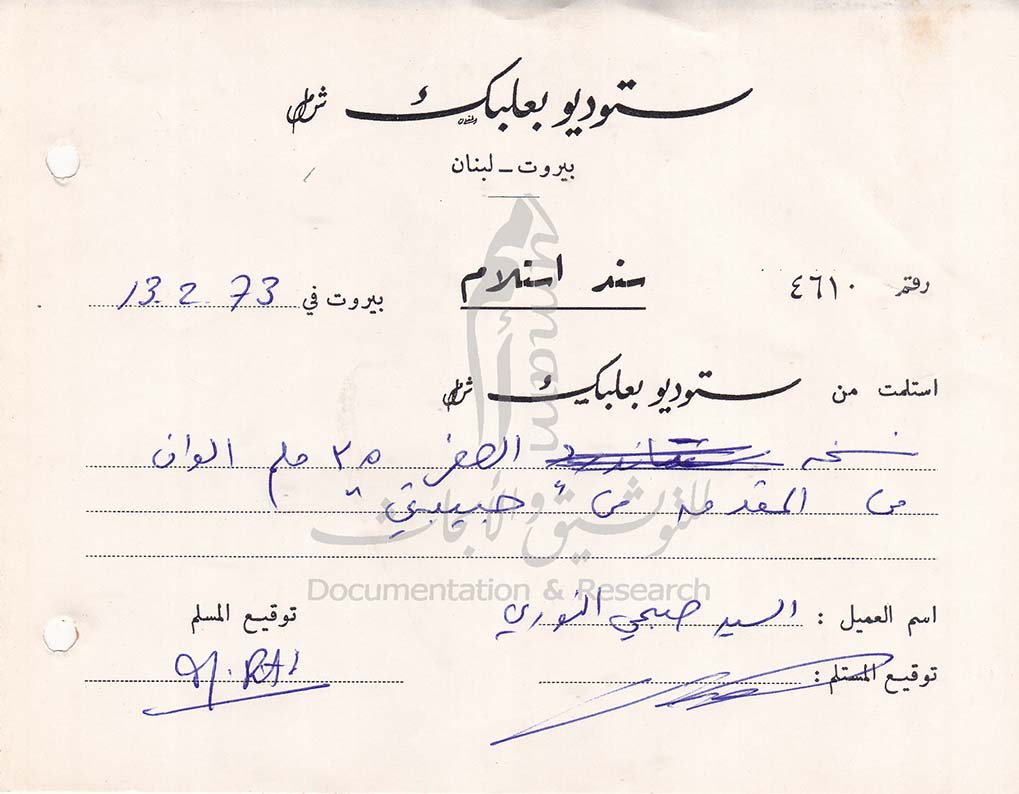 ستوديو بعلبك ش م ل
بيروت - لبنان
رقم ٤٦١٠
سند استلام
بيروت في 13.2.73
استلمت من ستوديو بعلبك ش م ل
نسخة الصفر ٣٥ ملم الوان
من المقدمه من "حبيبتي"
umam
للتوثيق والأبحاث
Documentation & Research
اسم العميل : السيد صبحي النوري
توقيع المستلم :
توقيع المسلم
M. RAI